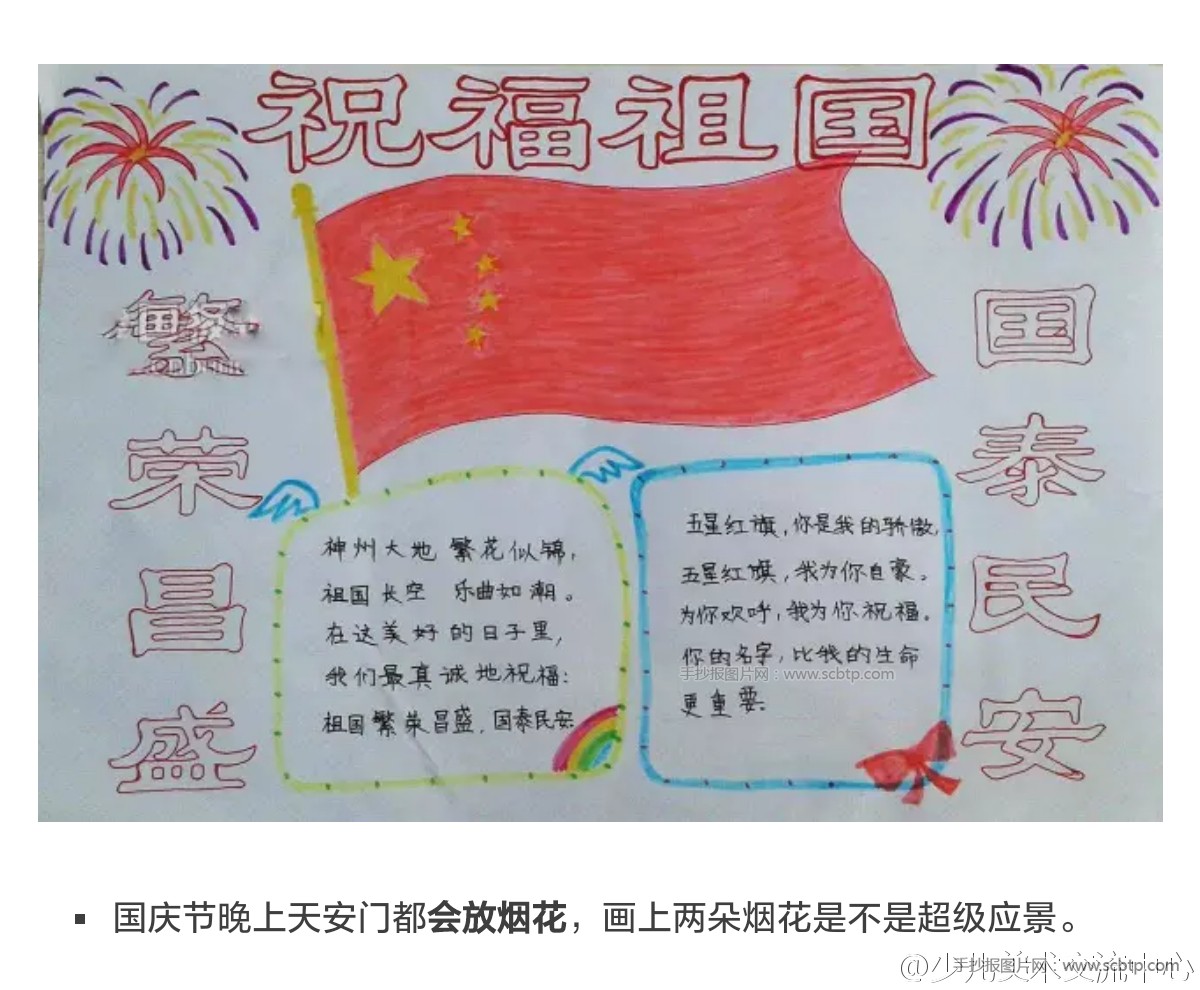 祝福祖国
繁荣昌盛
国泰民安
神州大地 繁花似锦，
祖国长空 乐曲如潮。
在这美好的日子里，
我们最真诚地祝福：
祖国繁荣昌盛，国泰民安
五星红旗，你是我的骄傲，
五星红旗，我为你自豪。
为你欢呼，我为你祝福。
你的名字，比我的生命
手抄报图片网：www.scbtp.com
更重要.
▪ 国庆节晚上天安门都会放烟花，画上两朵烟花是不是超级应景。
@少儿美术交流中心
手抄报图片网：www.scbtp.com